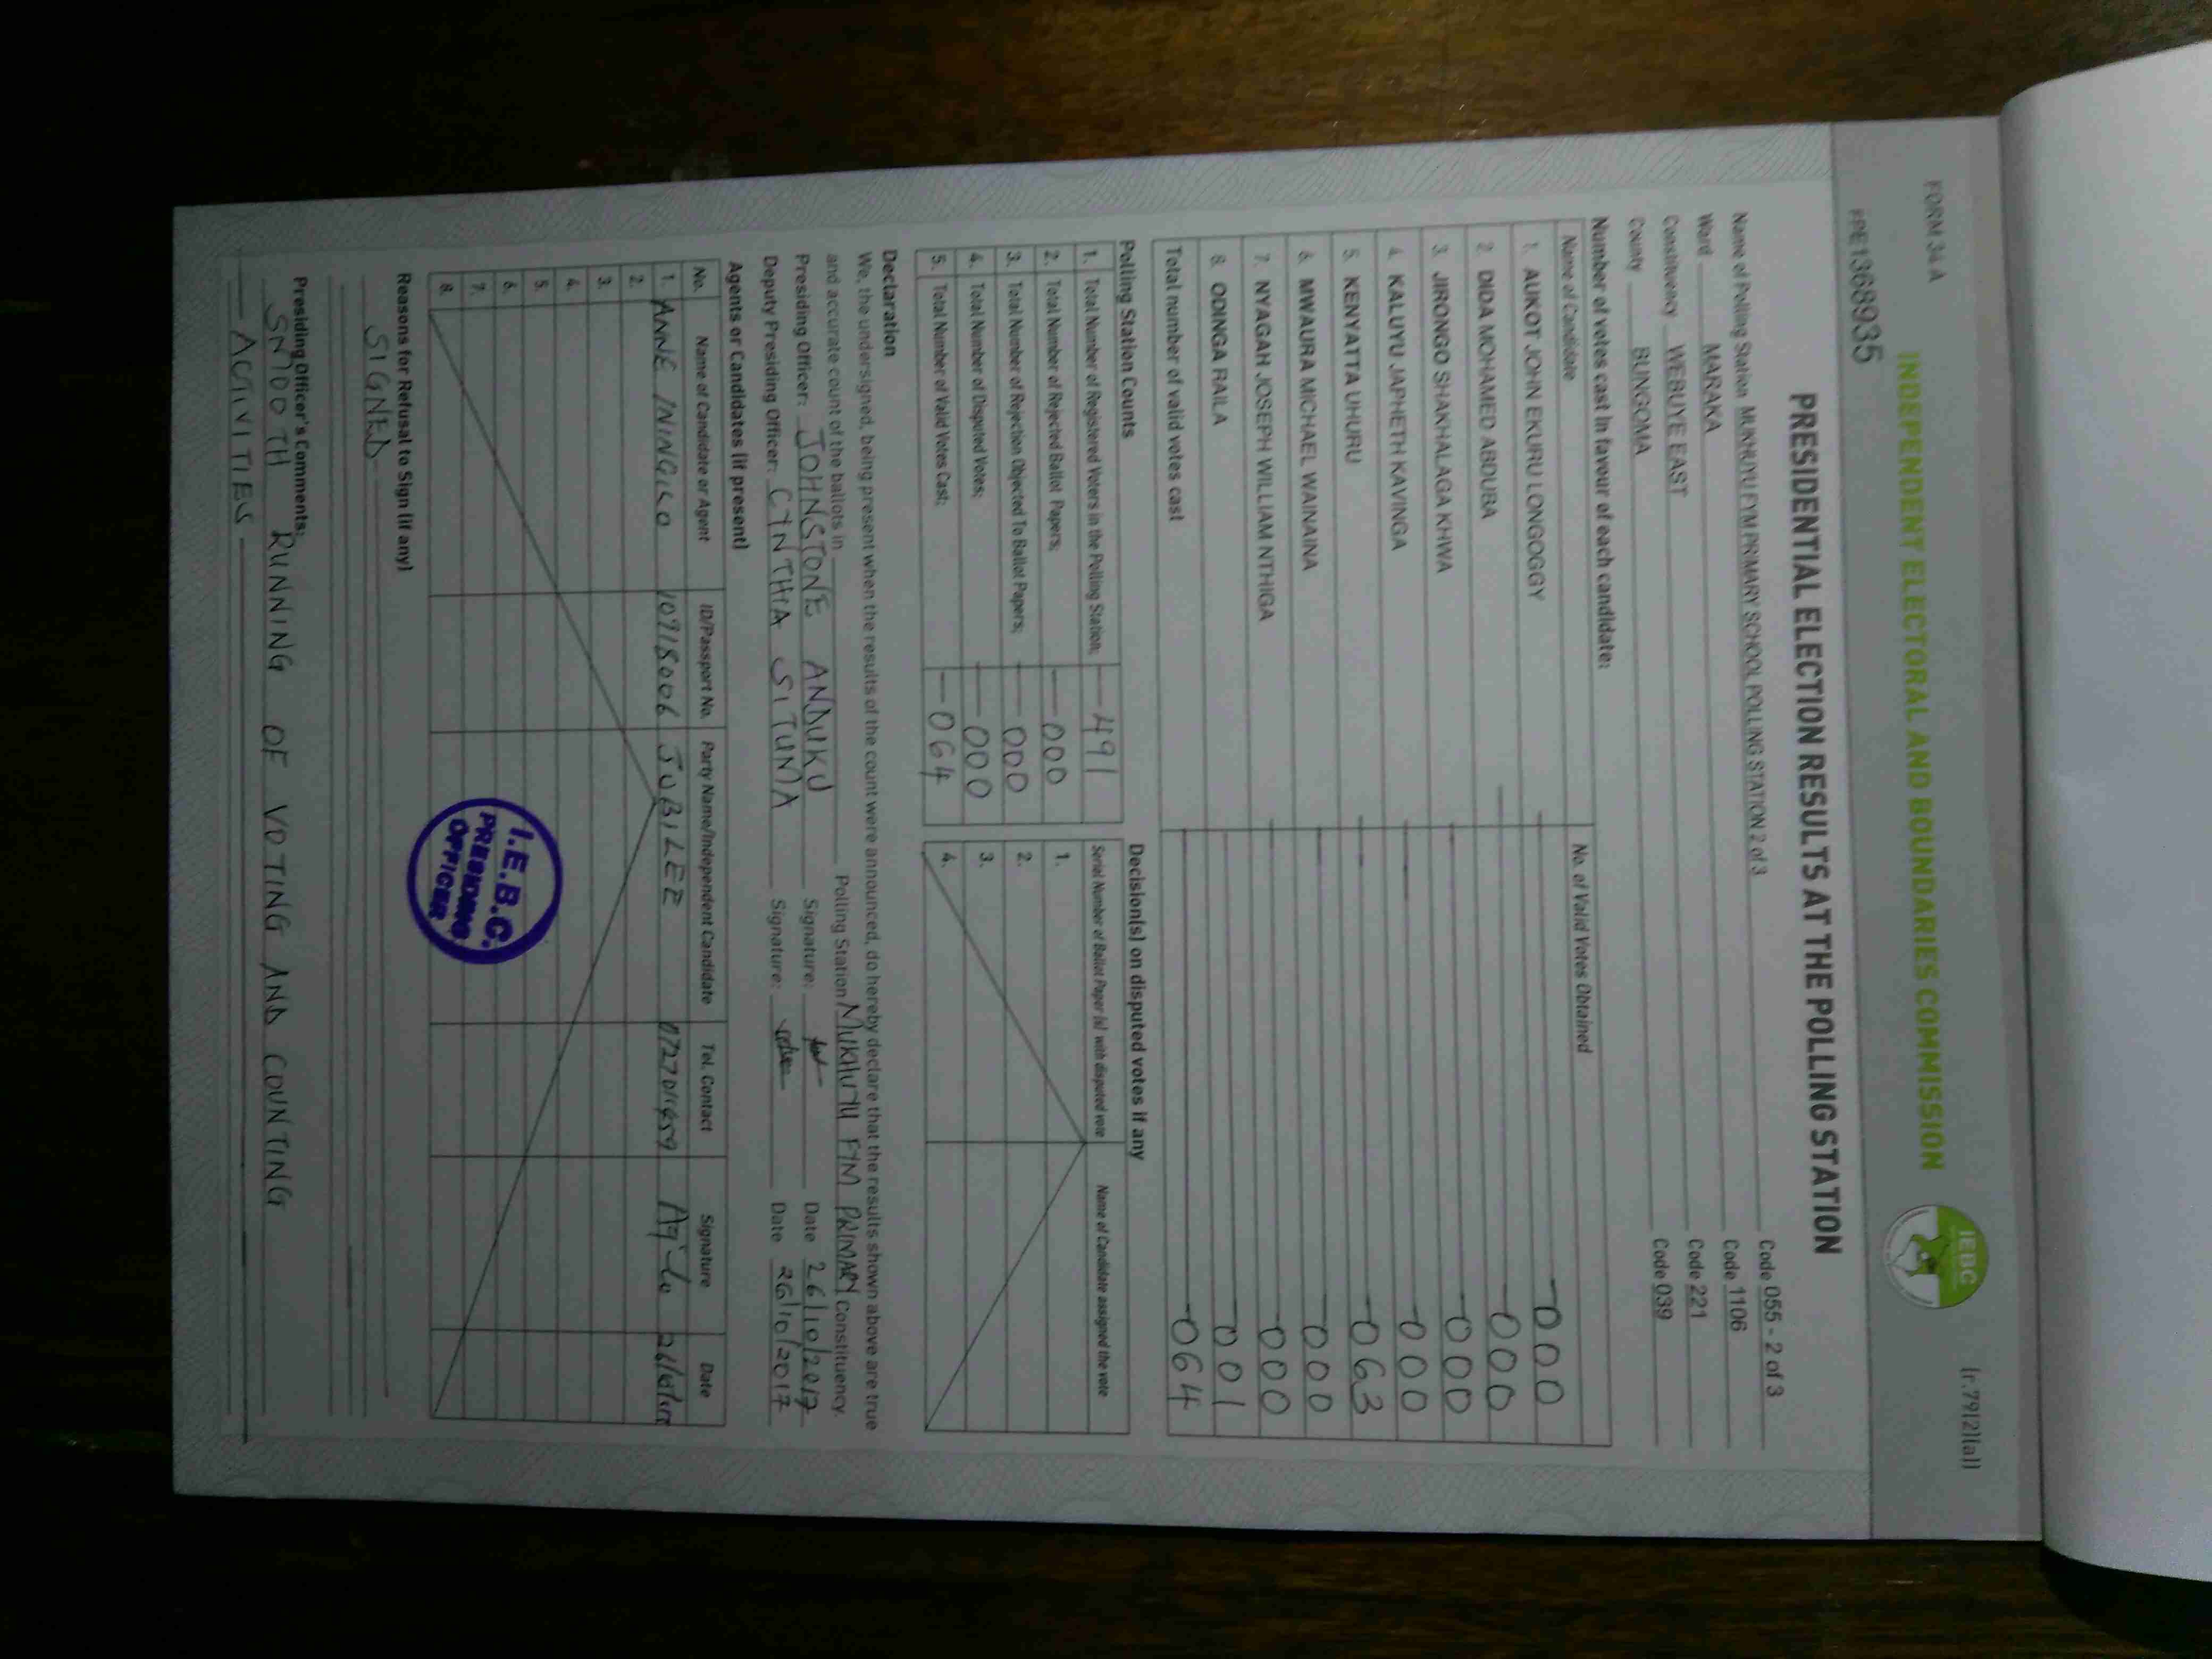 FORM 34 A
(r.79(2)(a))
INDEPENDENT ELECTORAL AND BOUNDARIES COMMISSION
IEBC
PPE1368935
PRESIDENTIAL ELECTION RESULTS AT THE POLLING STATION
Name of Polling Station MUKHUYU FYM PRIMARY SCHOOL POLLING STATION 2 of 3 Code 055 - 2 of 3
Ward MARAKA Code 1106
Constituency WEBUYE EAST Code 221
County BUNGOMA Code 039
Number of votes cast in favour of each candidate:
Name of Candidate No. of Valid Votes Obtained
1. AUKOT JOHN EKURU LONGOGGY 000
2. DIDA MOHAMED ABDUBA 000
3. JIRONGO SHAKHALAGA KHWA 000
4. KALUYU JAPHETH KAVINGA 000
5. KENYATTA UHURU 063
6. MWAURA MICHAEL WAINAINA 000
7. NYAGAH JOSEPH WILLIAM NTHIGA 000
8. ODINGA RAILA 001
Total number of valid votes cast 064
Polling Station Counts
1. Total Number of Registered Voters in the Polling Station; 491
2. Total Number of Rejected Ballot Papers; 000
3. Total Number of Rejection Objected To Ballot Papers; 000
4. Total Number of Disputed Votes; 000
5. Total Number of Valid Votes Cast; 064
Decision(s) on disputed votes if any
Serial Number of Ballot Paper (s) with disputed vote Name of Candidate assigned the vote
1.
2.
3.
4.
Declaration
We, the undersigned, being present when the results of the count were announced, do hereby declare that the results shown above are true
and accurate count of the ballots in Polling Station MUKHUYU FYM PRIMARY Constituency.
Presiding Officer: JOHNSTONE ANDUKU Signature: Date 26/10/2017
Deputy Presiding Officer: CYNTHIA SITUMA Signature: Date 26/10/2017
Agents or Candidates (if present)
No. Name of Candidate or Agent ID/Passport No. Party Name/Independent Candidate Tel. Contact Signature Date
1. ANNE 10918006 JUBILEE
2.
3.
4.
5.
6.
7.
8.
I.E.B.C.
PRESIDING
OFFICER
Reasons for Refusal to Sign (if any)
SIGNED
Presiding Officer's Comments:
SMOOTH RUNNING OF VOTING AND COUNTING
ACTIVITIES